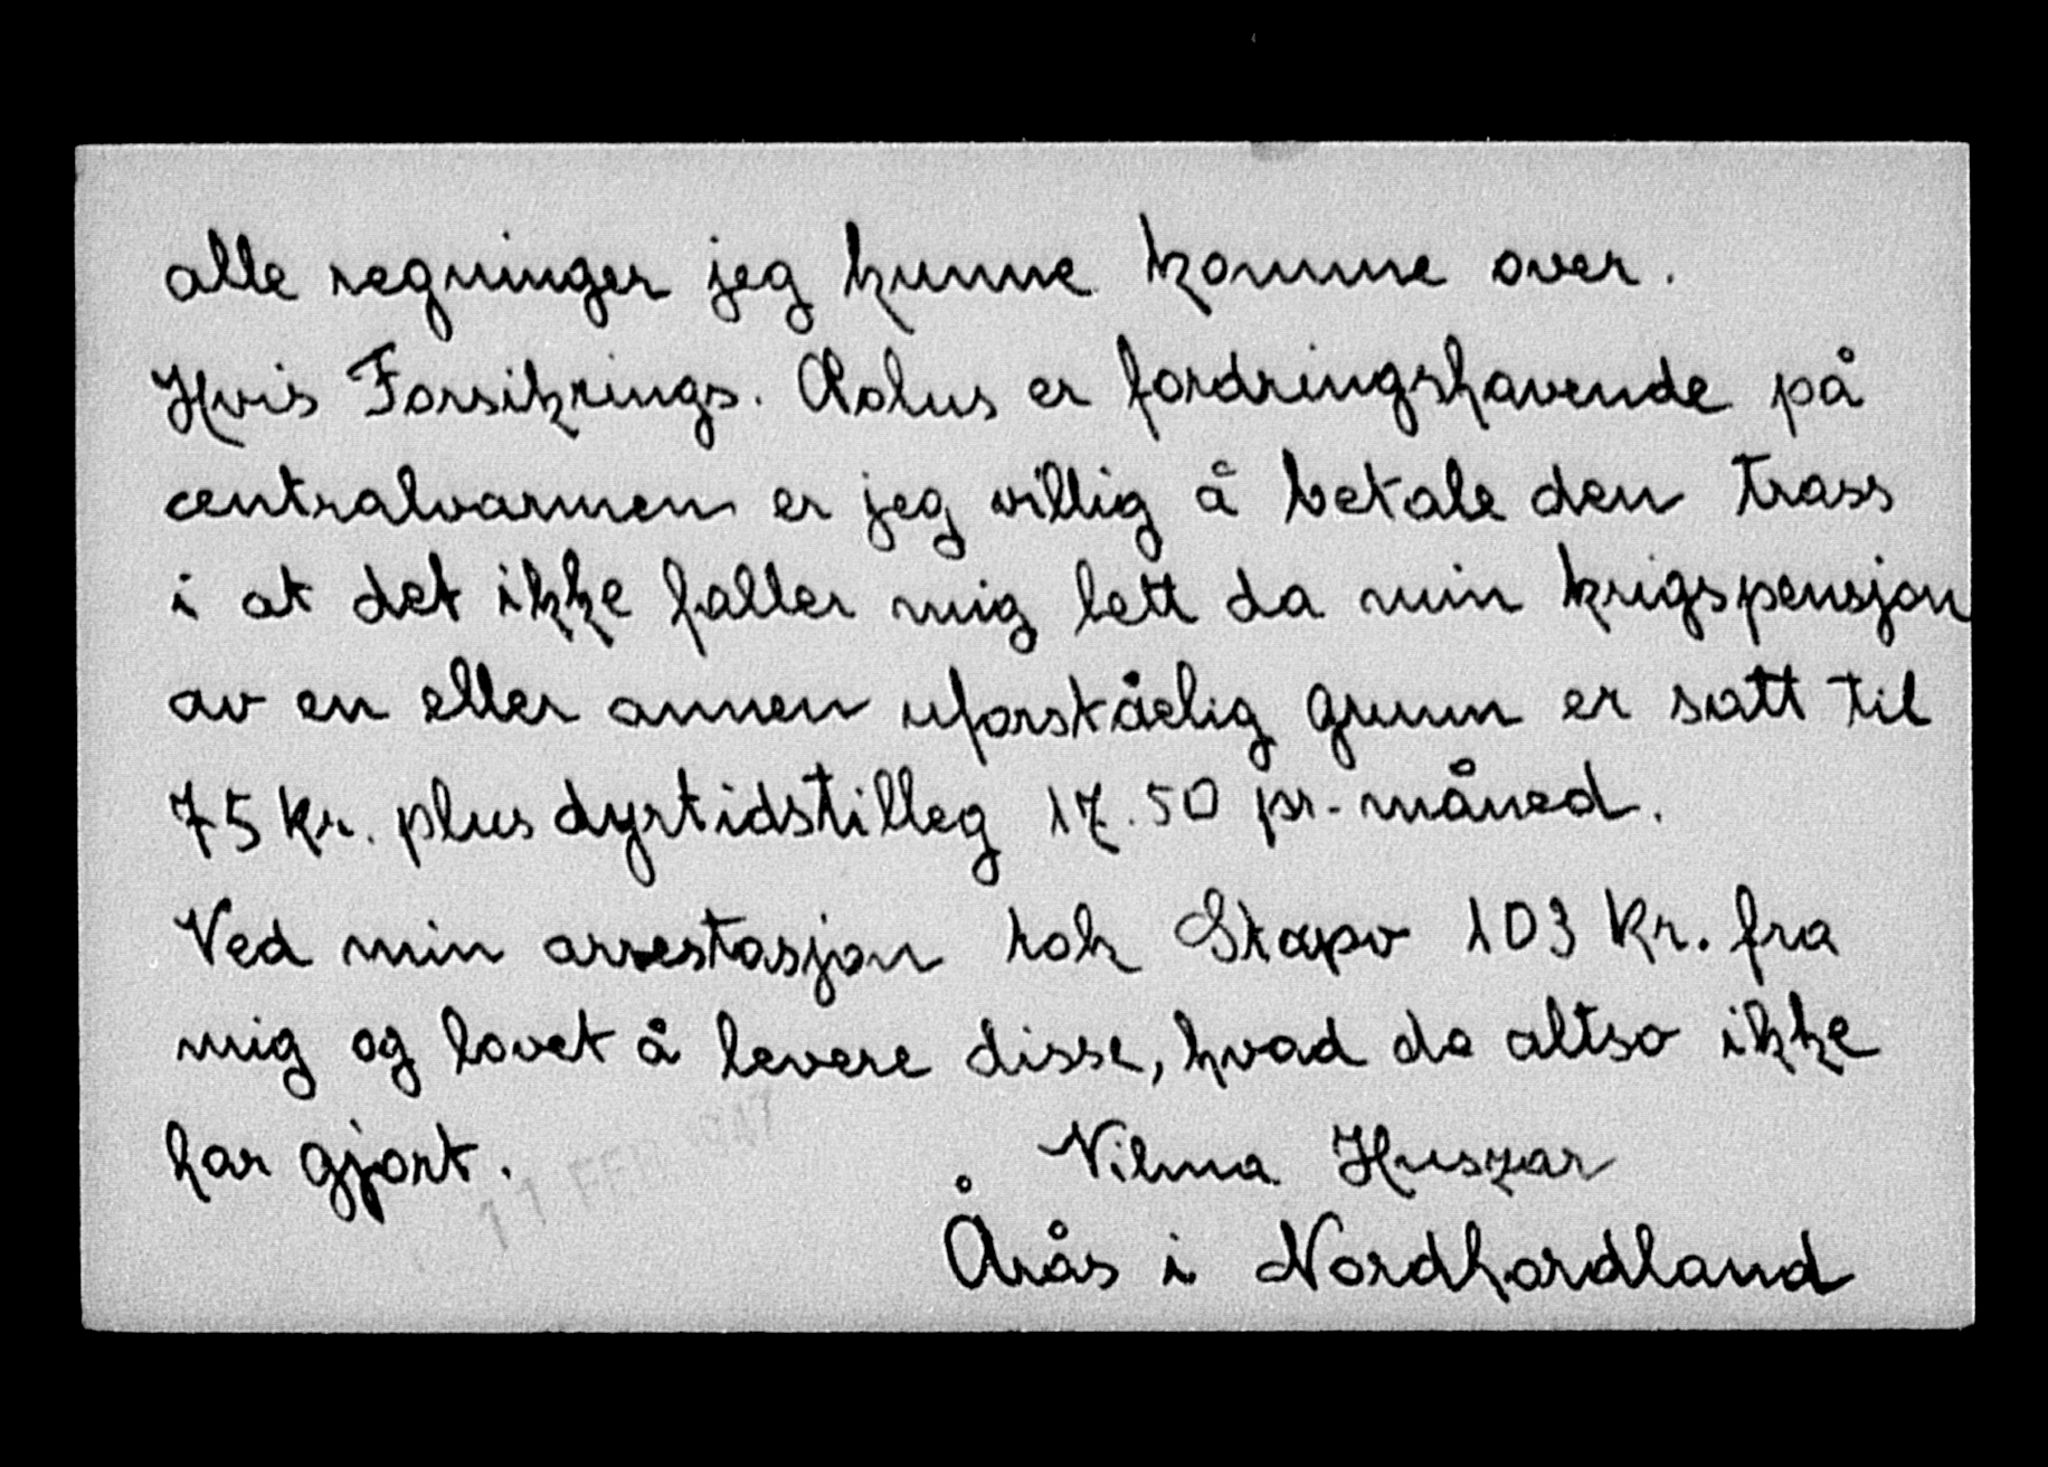 alle regninger jeg kunne komme over.
Hvis Forsikrings. Æolus er fordringshavende på
centralvarmen er jeg villig å betale den trass
i at det ikke faller mig lett da min krigspensjon
av en eller annen uforståelig grunn er satt til
75 kr. plus dyrtidstilleg 17.50 pr. måned.
Ved min arrestasjon tok Stapo 103 kr. fra
mig og lovet å levere disse, hvad de altso ikke
har gjort.
11 FEB 1947
Vilma Huszar
Årås i Nordhordland